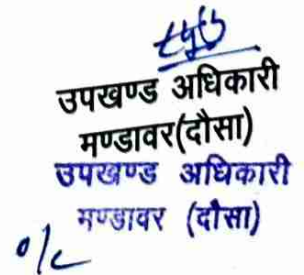 उपखण्ड अधिकारी
मण्डावर(दौसा)
उपखण्ड अधिकारी
मण्डावर (दौसा)
o/c